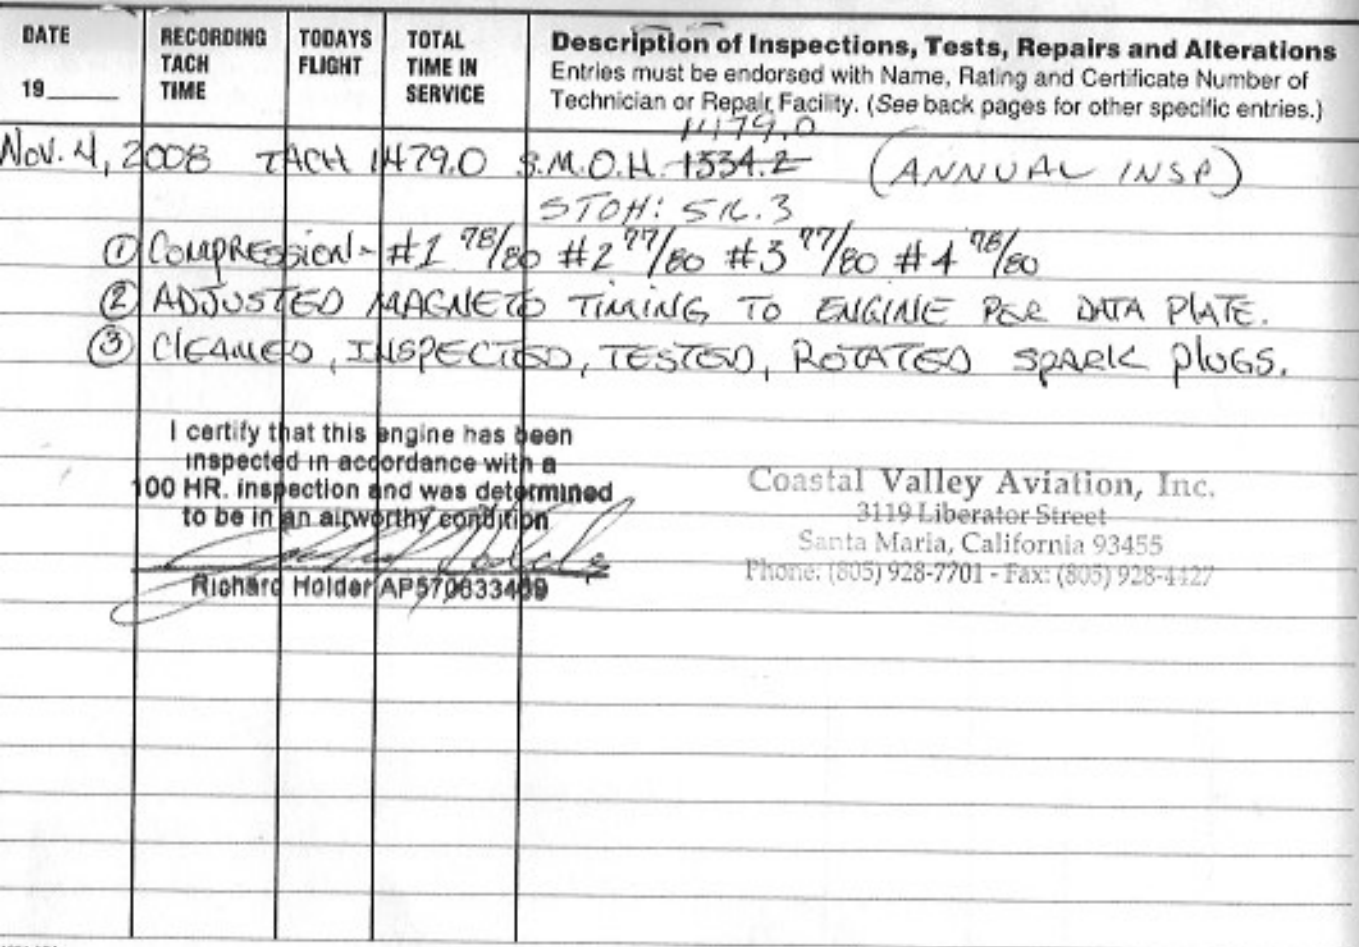 DATE
19____
RECORDING
TACH
TIME
TODAYS
FLIGHT
TOTAL
TIME IN
SERVICE
Description of Inspections, Tests, Repairs and Alterations
Entries must be endorsed with Name, Rating and Certificate Number of
Technician or Repair Facility. (See back pages for other specific entries.)
1479.0
Nov. 4, 2008 TACH 1479.0 S.M.O.H. 1334.2 (ANNUAL INSP)
STOH:
① COMPRESSION - #1 78/80 #2 77/80 #3 77/80 #4 78/80
② ADJUSTED MAGNETO TIMING TO ENGINE PER DATA PLATE.
③ CLEANED, INSPECTED, TESTED, ROTATED SPARK PLUGS.
I certify that this engine has been
inspected in accordance with a
100 HR. inspection and was determined
to be in an airworthy condition
Richard Holder AP570633409
Coastal Valley Aviation, Inc.
3119 Liberator Street
Santa Maria, California 93455
Phone: (805) 928-7701 - Fax: (805) 928-4427